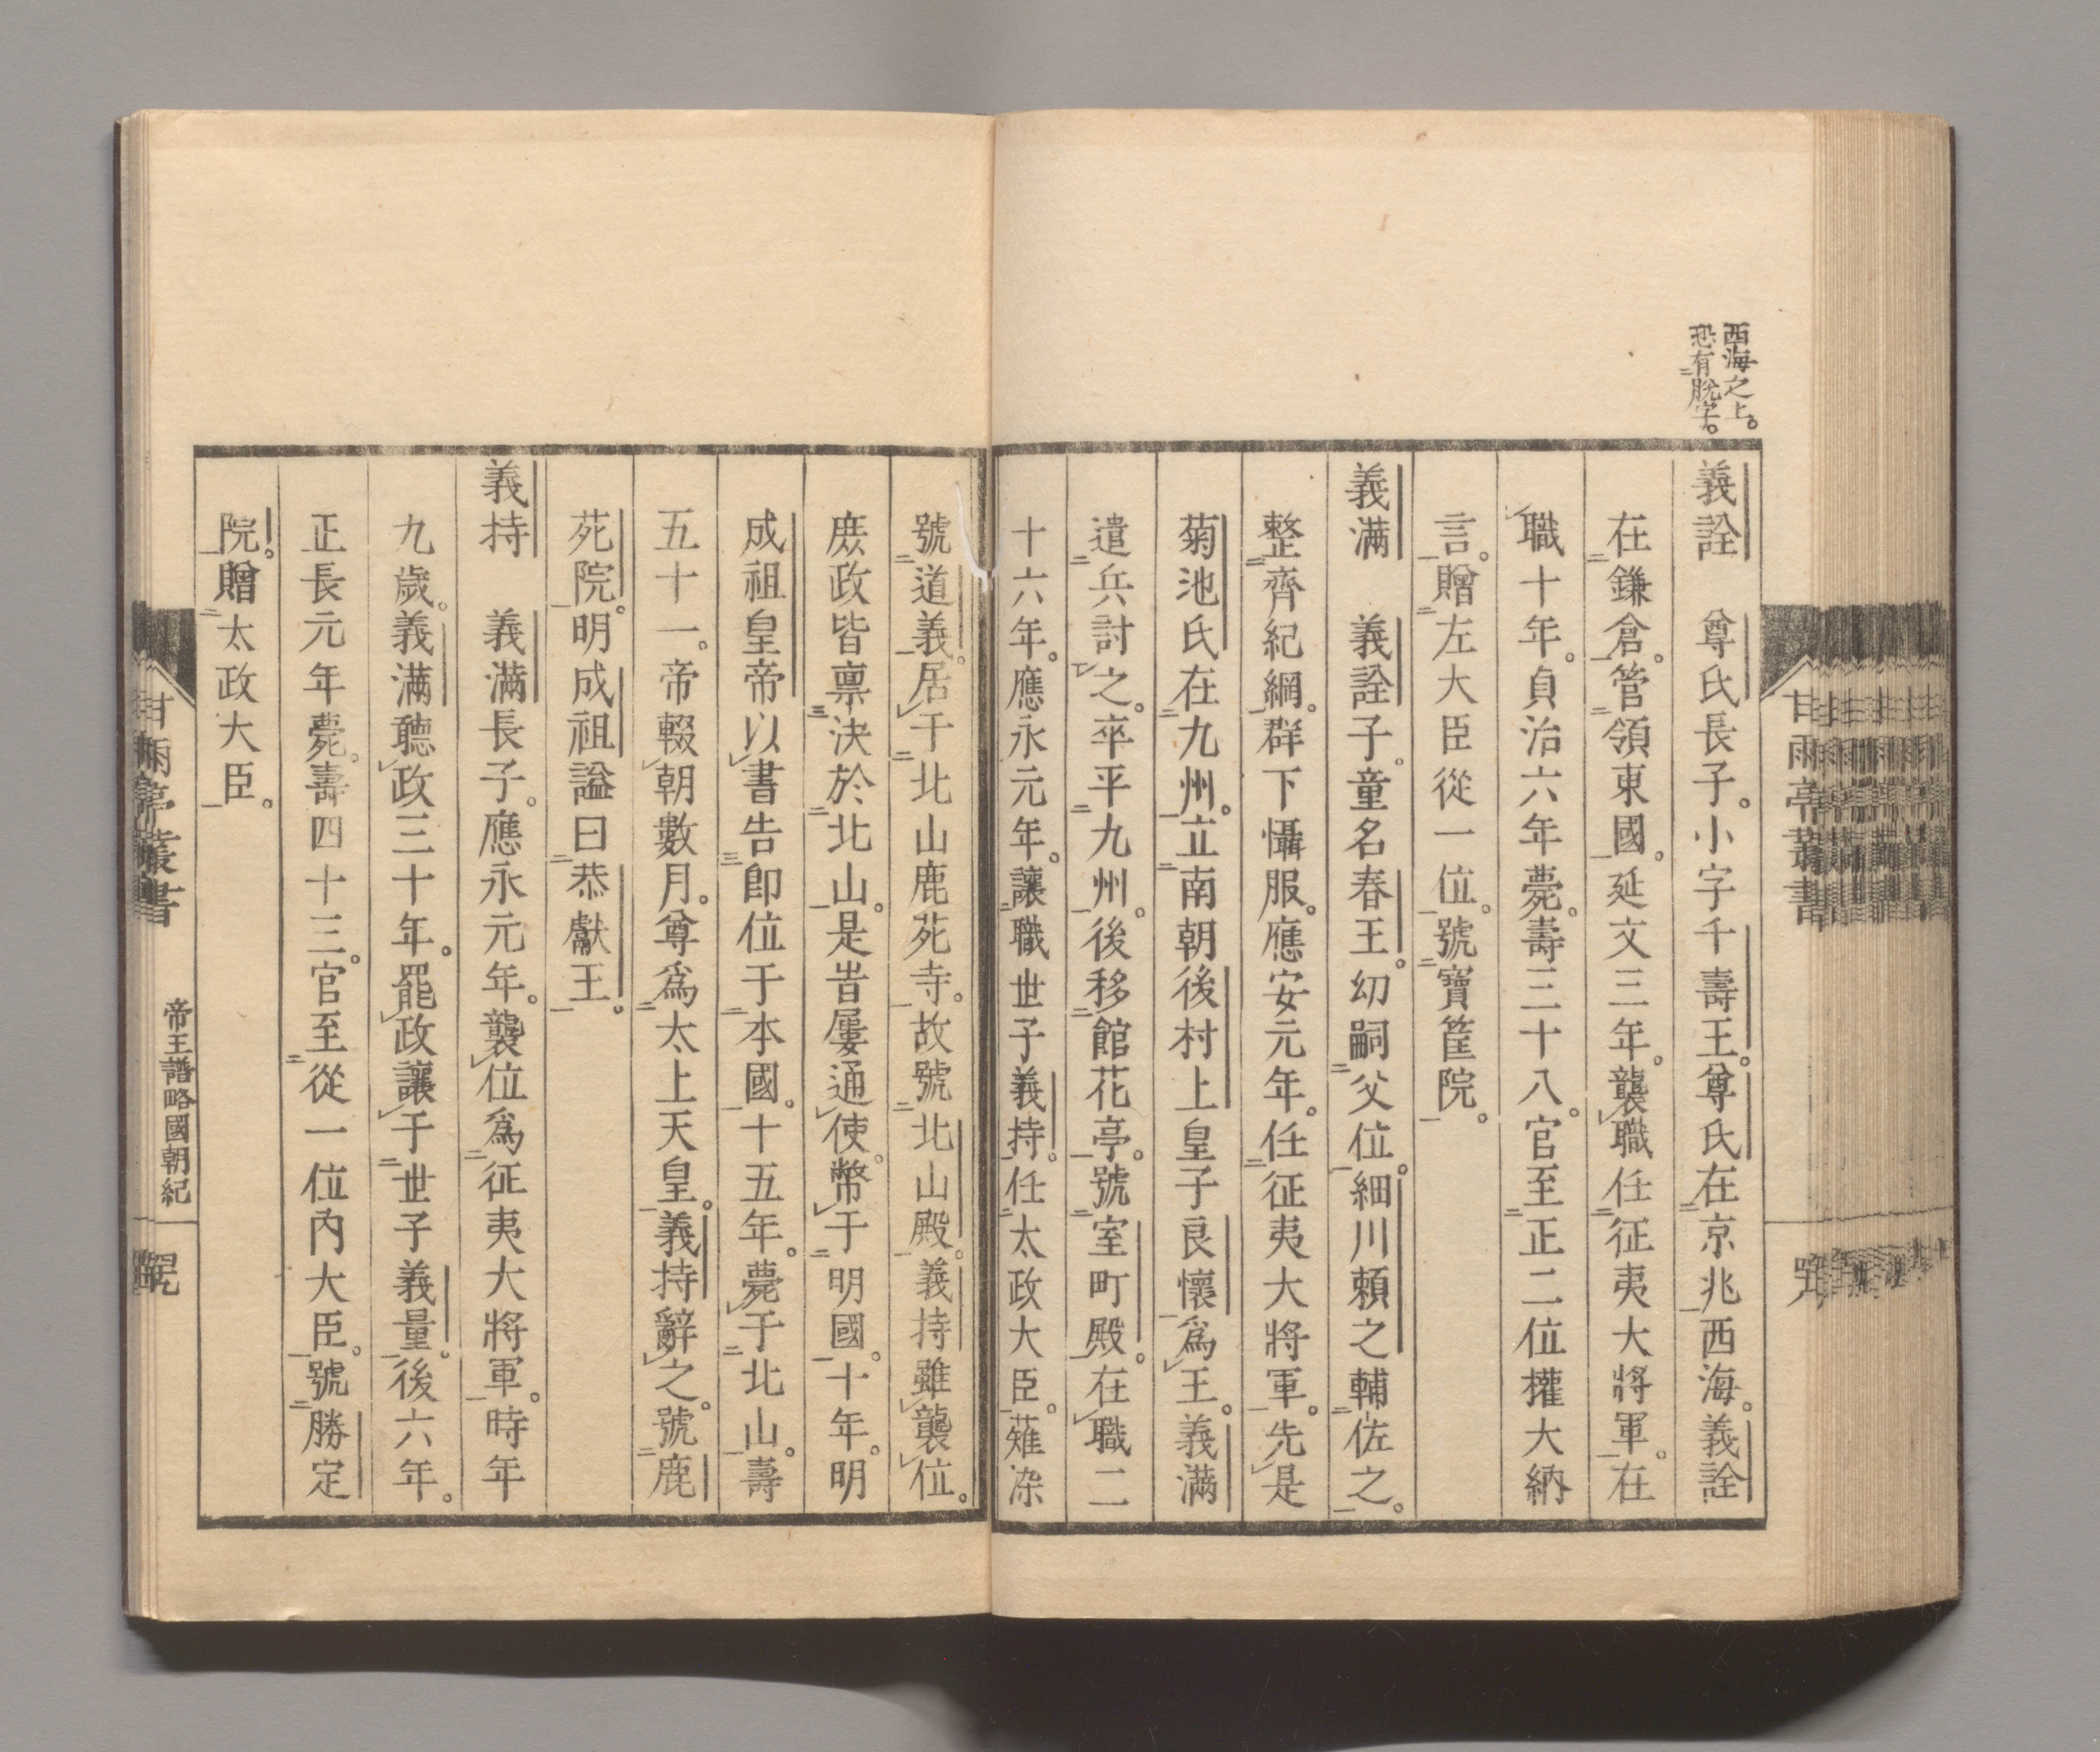 西海之上。
恐有脫字。
義詮　尊氏長子。小字千壽王。尊氏在京兆西海。義詮
在鎌倉。管領東國。延文三年。襲職任征夷大將軍。在
職十年。貞治六年薨。壽三十八。官至正二位權大納
言。贈左大臣從一位。號寶筐院。
義滿　義詮子。童名春王。幼嗣父位。細川頼之輔佐之。
整齊紀綱。群下懾服。應安元年。任征夷大將軍。先是
菊池氏在九州。立南朝後村上皇子良懷爲王。義滿
遣兵討之。卒平九州。後移館花亭。號室町殿。在職二
十六年。應永元年。讓職世子義持。任太政大臣。薙染
號道義。居于北山鹿苑寺。故號北山殿。義持雖襲位。
庶政皆禀決於北山。是昔屢通使。幣于明國。十年。明
成祖皇帝以書告卽位于本國。十五年。薨于北山。壽
五十一。帝輟朝數月。尊爲太上天皇。義持辭之。號鹿
苑院。明成祖謚曰恭獻王。
義持　義滿長子。應永元年。襲位爲征夷大將軍。時年
九歲。義滿聽政三十年。罷政讓于世子義量。後六年。
正長元年薨。壽四十三。官至從一位內大臣。號勝定
院。贈太政大臣。
甘雨亭叢書
甘雨亭叢書
帝王譜略國朝紀